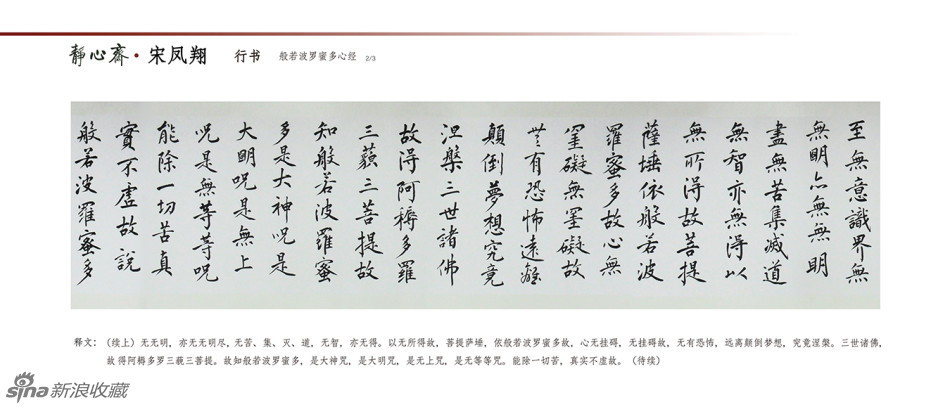 静心斋·宋凤翔 行书 般若波罗蜜多心经 2/3
至無意識界無
無明亦無無明
盡無苦集滅道
無智亦無得以
無所得故菩提
薩埵依般若波
羅蜜多故心無
罣礙無罣礙故
無有恐怖遠離
顛倒夢想究竟
涅槃三世諸佛
故得阿耨多羅
三藐三菩提故
知般若波羅蜜
多是大神呪是
大明呪是無上
呪是無等等呪
能除一切苦真
實不虛故說
般若波羅蜜多
释文：（续上）无无明，亦无无明尽，无苦、集、灭、道，无智，亦无得。以无所得故，菩提萨埵，依般若波罗蜜多故，心无挂碍，无挂碍故，无有恐怖，远离颠倒梦想，究竟涅槃。三世诸佛，
故得阿耨多罗三藐三菩提。故知般若波罗蜜多，是大神咒，是大明咒，是无上咒，是无等等咒。能除一切苦，真实不虚故。（待续）
sina新浪收藏